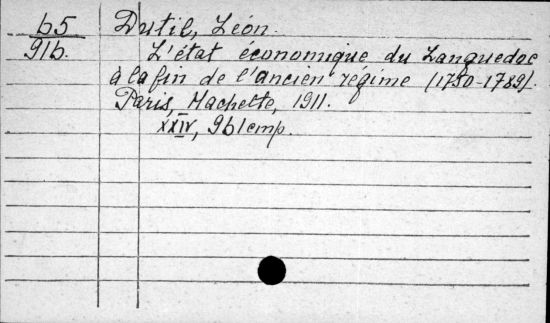 65 Dutil, Léon.
916. L'état économique du Languedoc
à la fin de l'ancien régime (1750-1789).
Paris, Hachette, 1911.
XXIV, 961 стр.